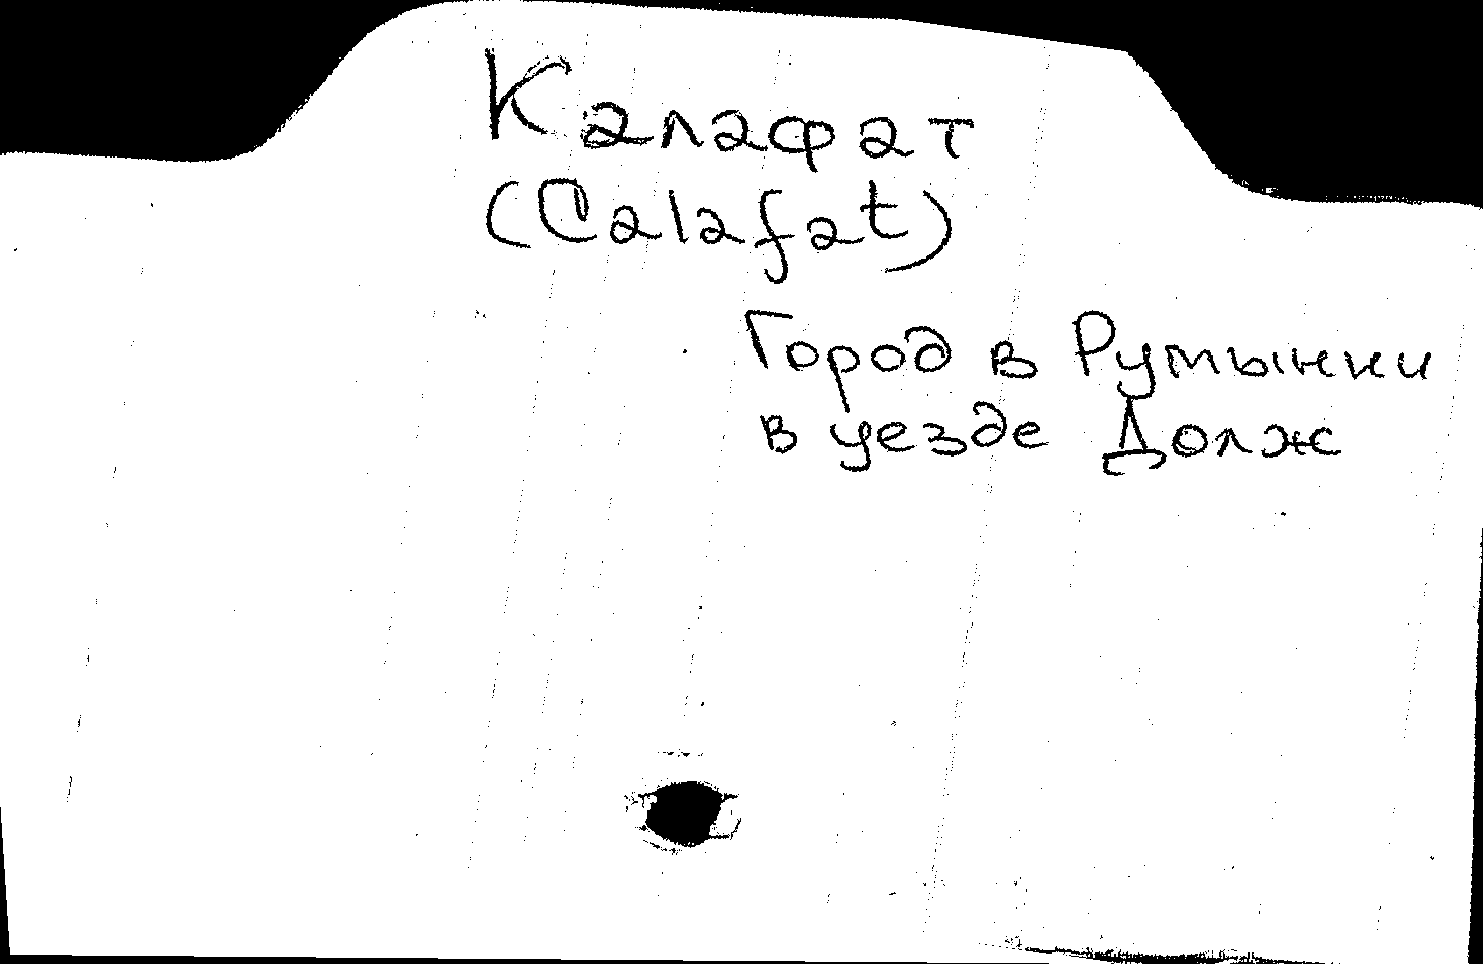 Калафат
(Calafat)
Город в Румынии
в уезде Долж